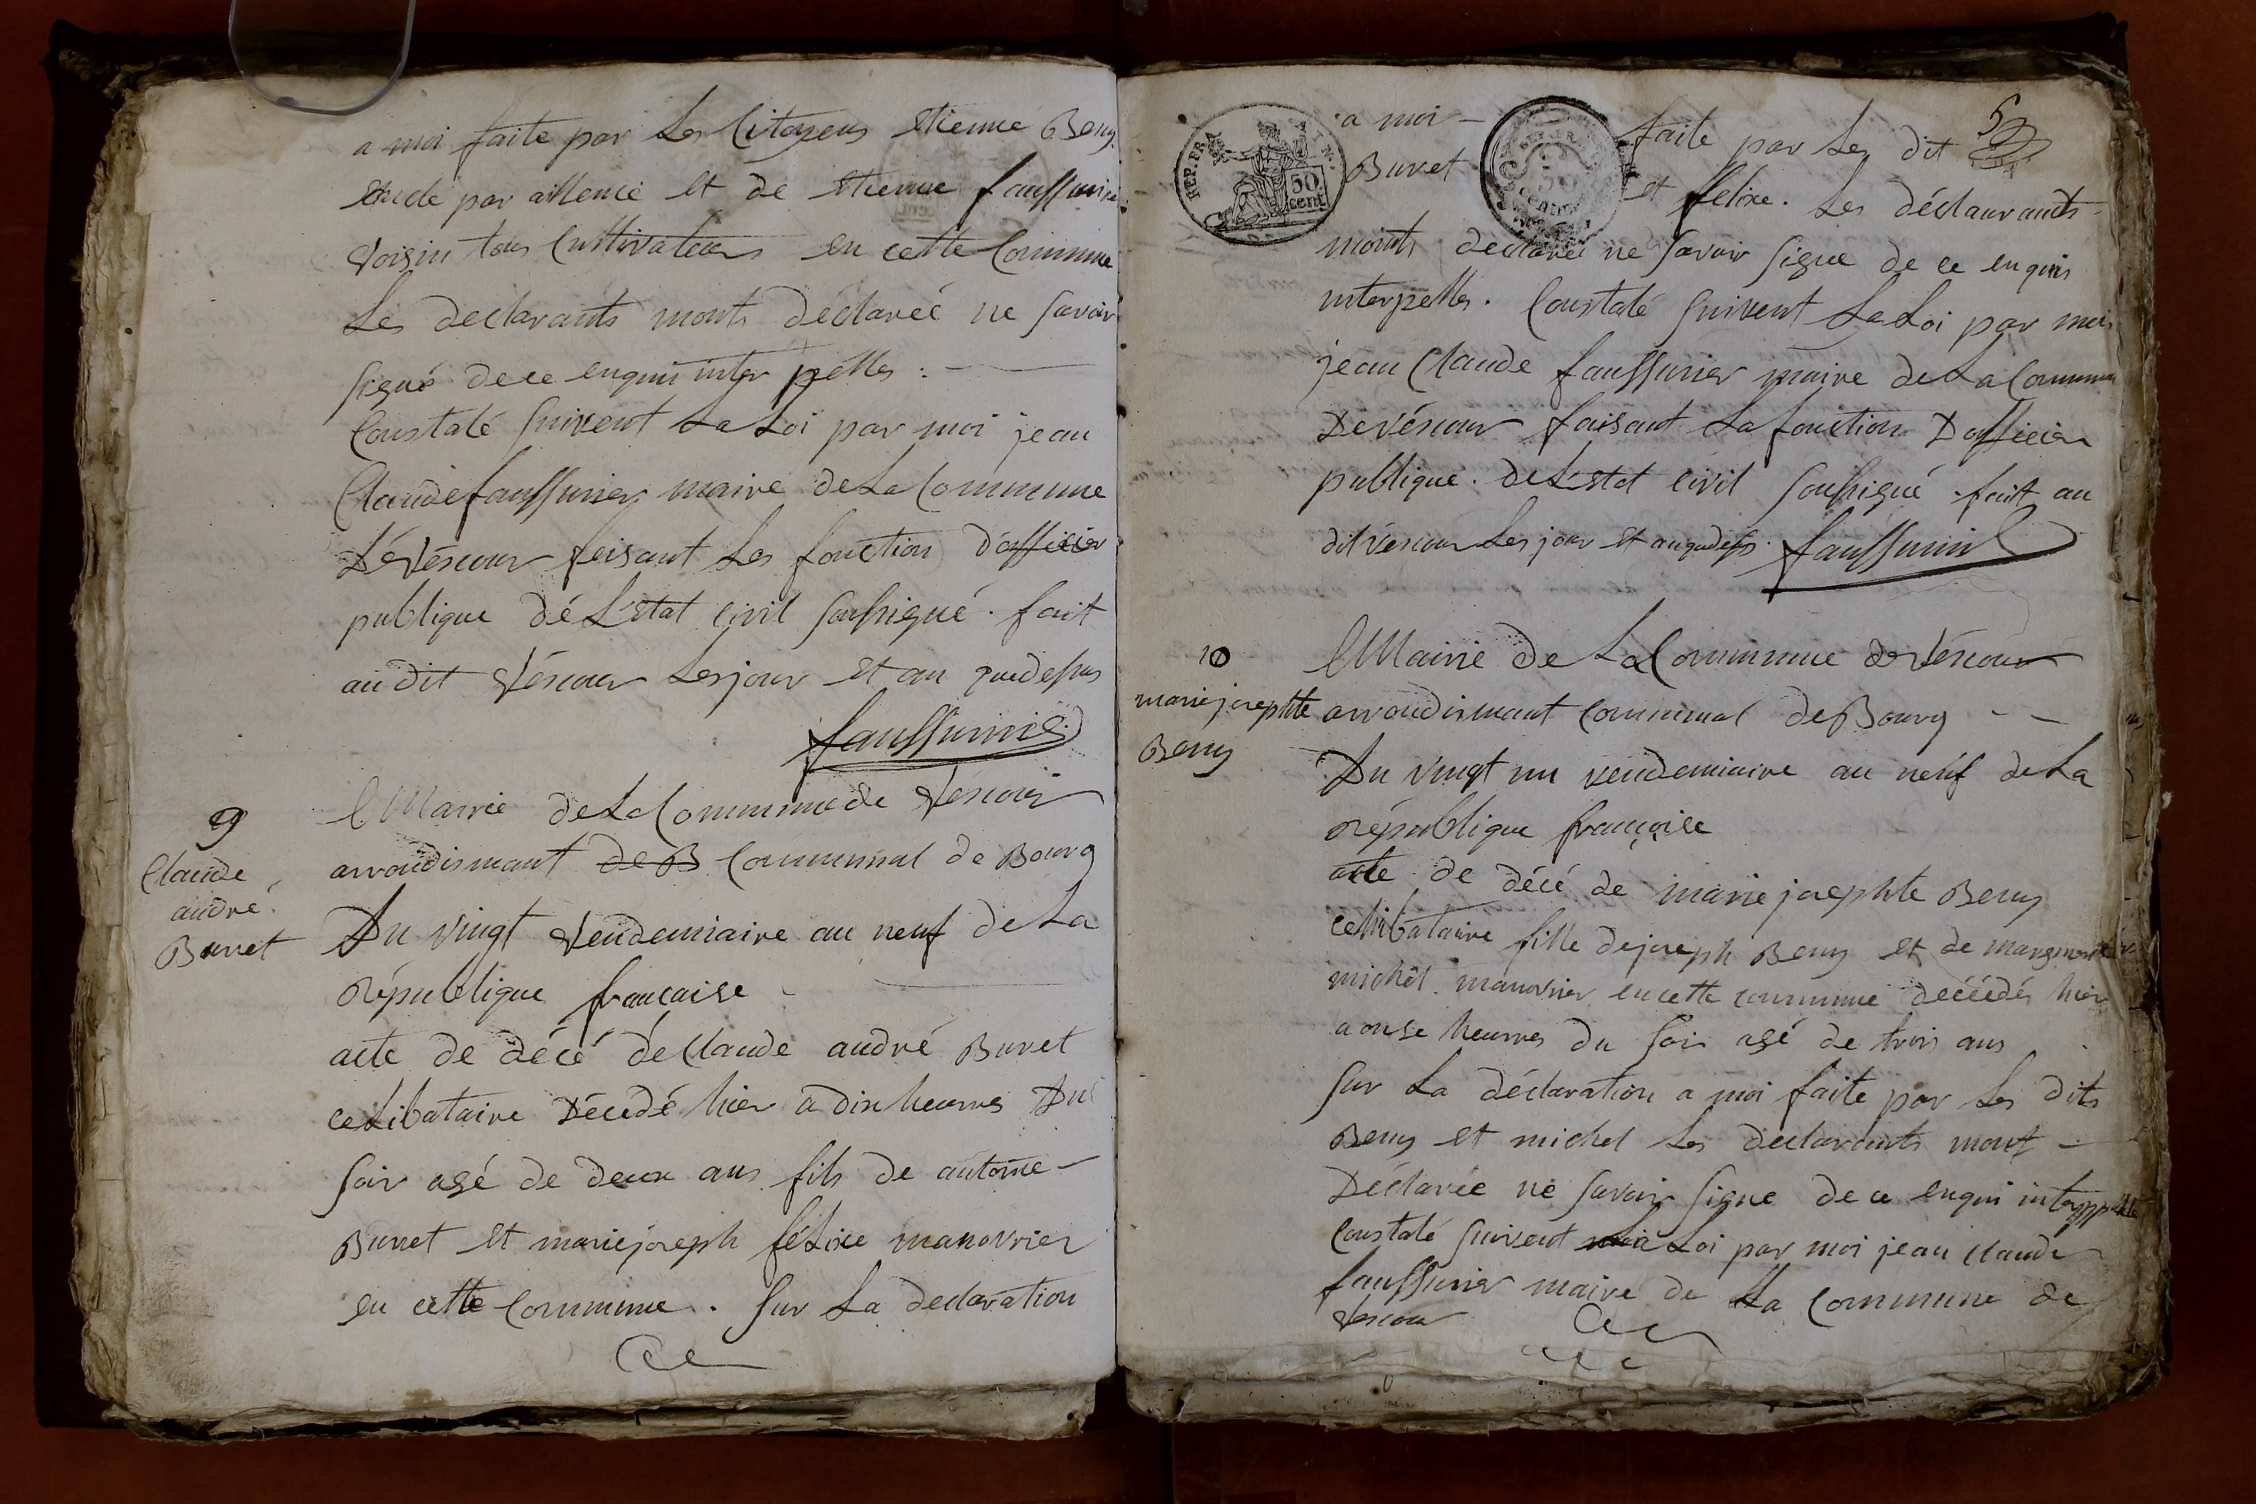 a moi faite par Les Citoyens etienne Beny
oncle par allence et de etienne faussurier
voisin tous Cultivateurs en cette Commune
Les declarants monts déclareé ne savoir
signé de ce enquis inter pellés :
Constaté suivent La Loi par moi jean
Claude faussurier maire de La Commune
de véscour feisant Les fonction d'officier
publique dé L'etat Civil soussigné . fait
au dit véscour Les jour et an que dessus
faussurier
9
Claude
andré
Buret
Mairie de La Commune de véscour
arrondismant de B Communal de Bourg
Du vingt vendemiaire an neuf de La
république francaise
acte de décé de Claude andré Buret
celibataire Décedé hier a dix heures Du
soir agé de deux ans fils de antoine
Buret et marie joseph félixe manovrier
en cette Commune . sur La declaration
a moi faite par Les dit
Buret et felixe . Les déclarants
monts déclareé ne savoir signe de ce enquis
interpellés . Constaté suivent La Loi par moi
jean Claude faussurier maire de La Commune
De véscour faisant La fonction D'officier
publique . de L'etat Civil soussigné . fait au
dit véscour Les jour et an que dess . faussurier
REP. FRA
50 cent
5
10
marie josephte
Beny
Mairie de La Commune de véscour
arrondismant Communal de Bourg
Du vingt un vendemiaire an neuf de La
république francoise
acte de décé de marie josephte Beny
celibataire fille de joseph Beny et de
michel manovrier en cette commune décédés hier
a onse heures du soir agé de trois ans
sur La déclaration a moi faite par Les dits
Beny et michel Les declarants mont
Déclareé ne savoir signe de ce enqui interppellé
Constaté suivent La Loi par moi jean Claude
faussurier maire de La Commune de
véscour